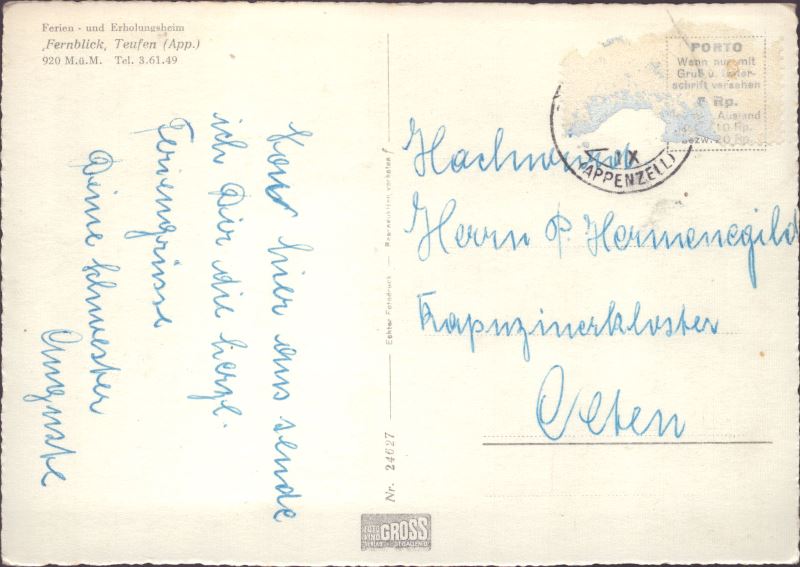 Ferien - und Erholungsheim
„Fernblick, Teufen (App.)
920 M.ü.M. Tel. 3.61.49
Von hier aus sende
ich Dir die herzl.
Feriengrüsse
Deine Schwester
Auguste
Echter Fotodruck — Reproduktion verboten!
Nr. 24627
FOTO
GROSS
ST. GALLEN
PORTO
Wenn nur mit
Gruß u. Unter-
schrift versehen
5 Rp.
Ausland
10 Rp.
bezw. 20 Rp.
IX
(APPENZELL)
Hochwürd
Herrn P. Hermenegild
Kapuzinerkloster
Olten